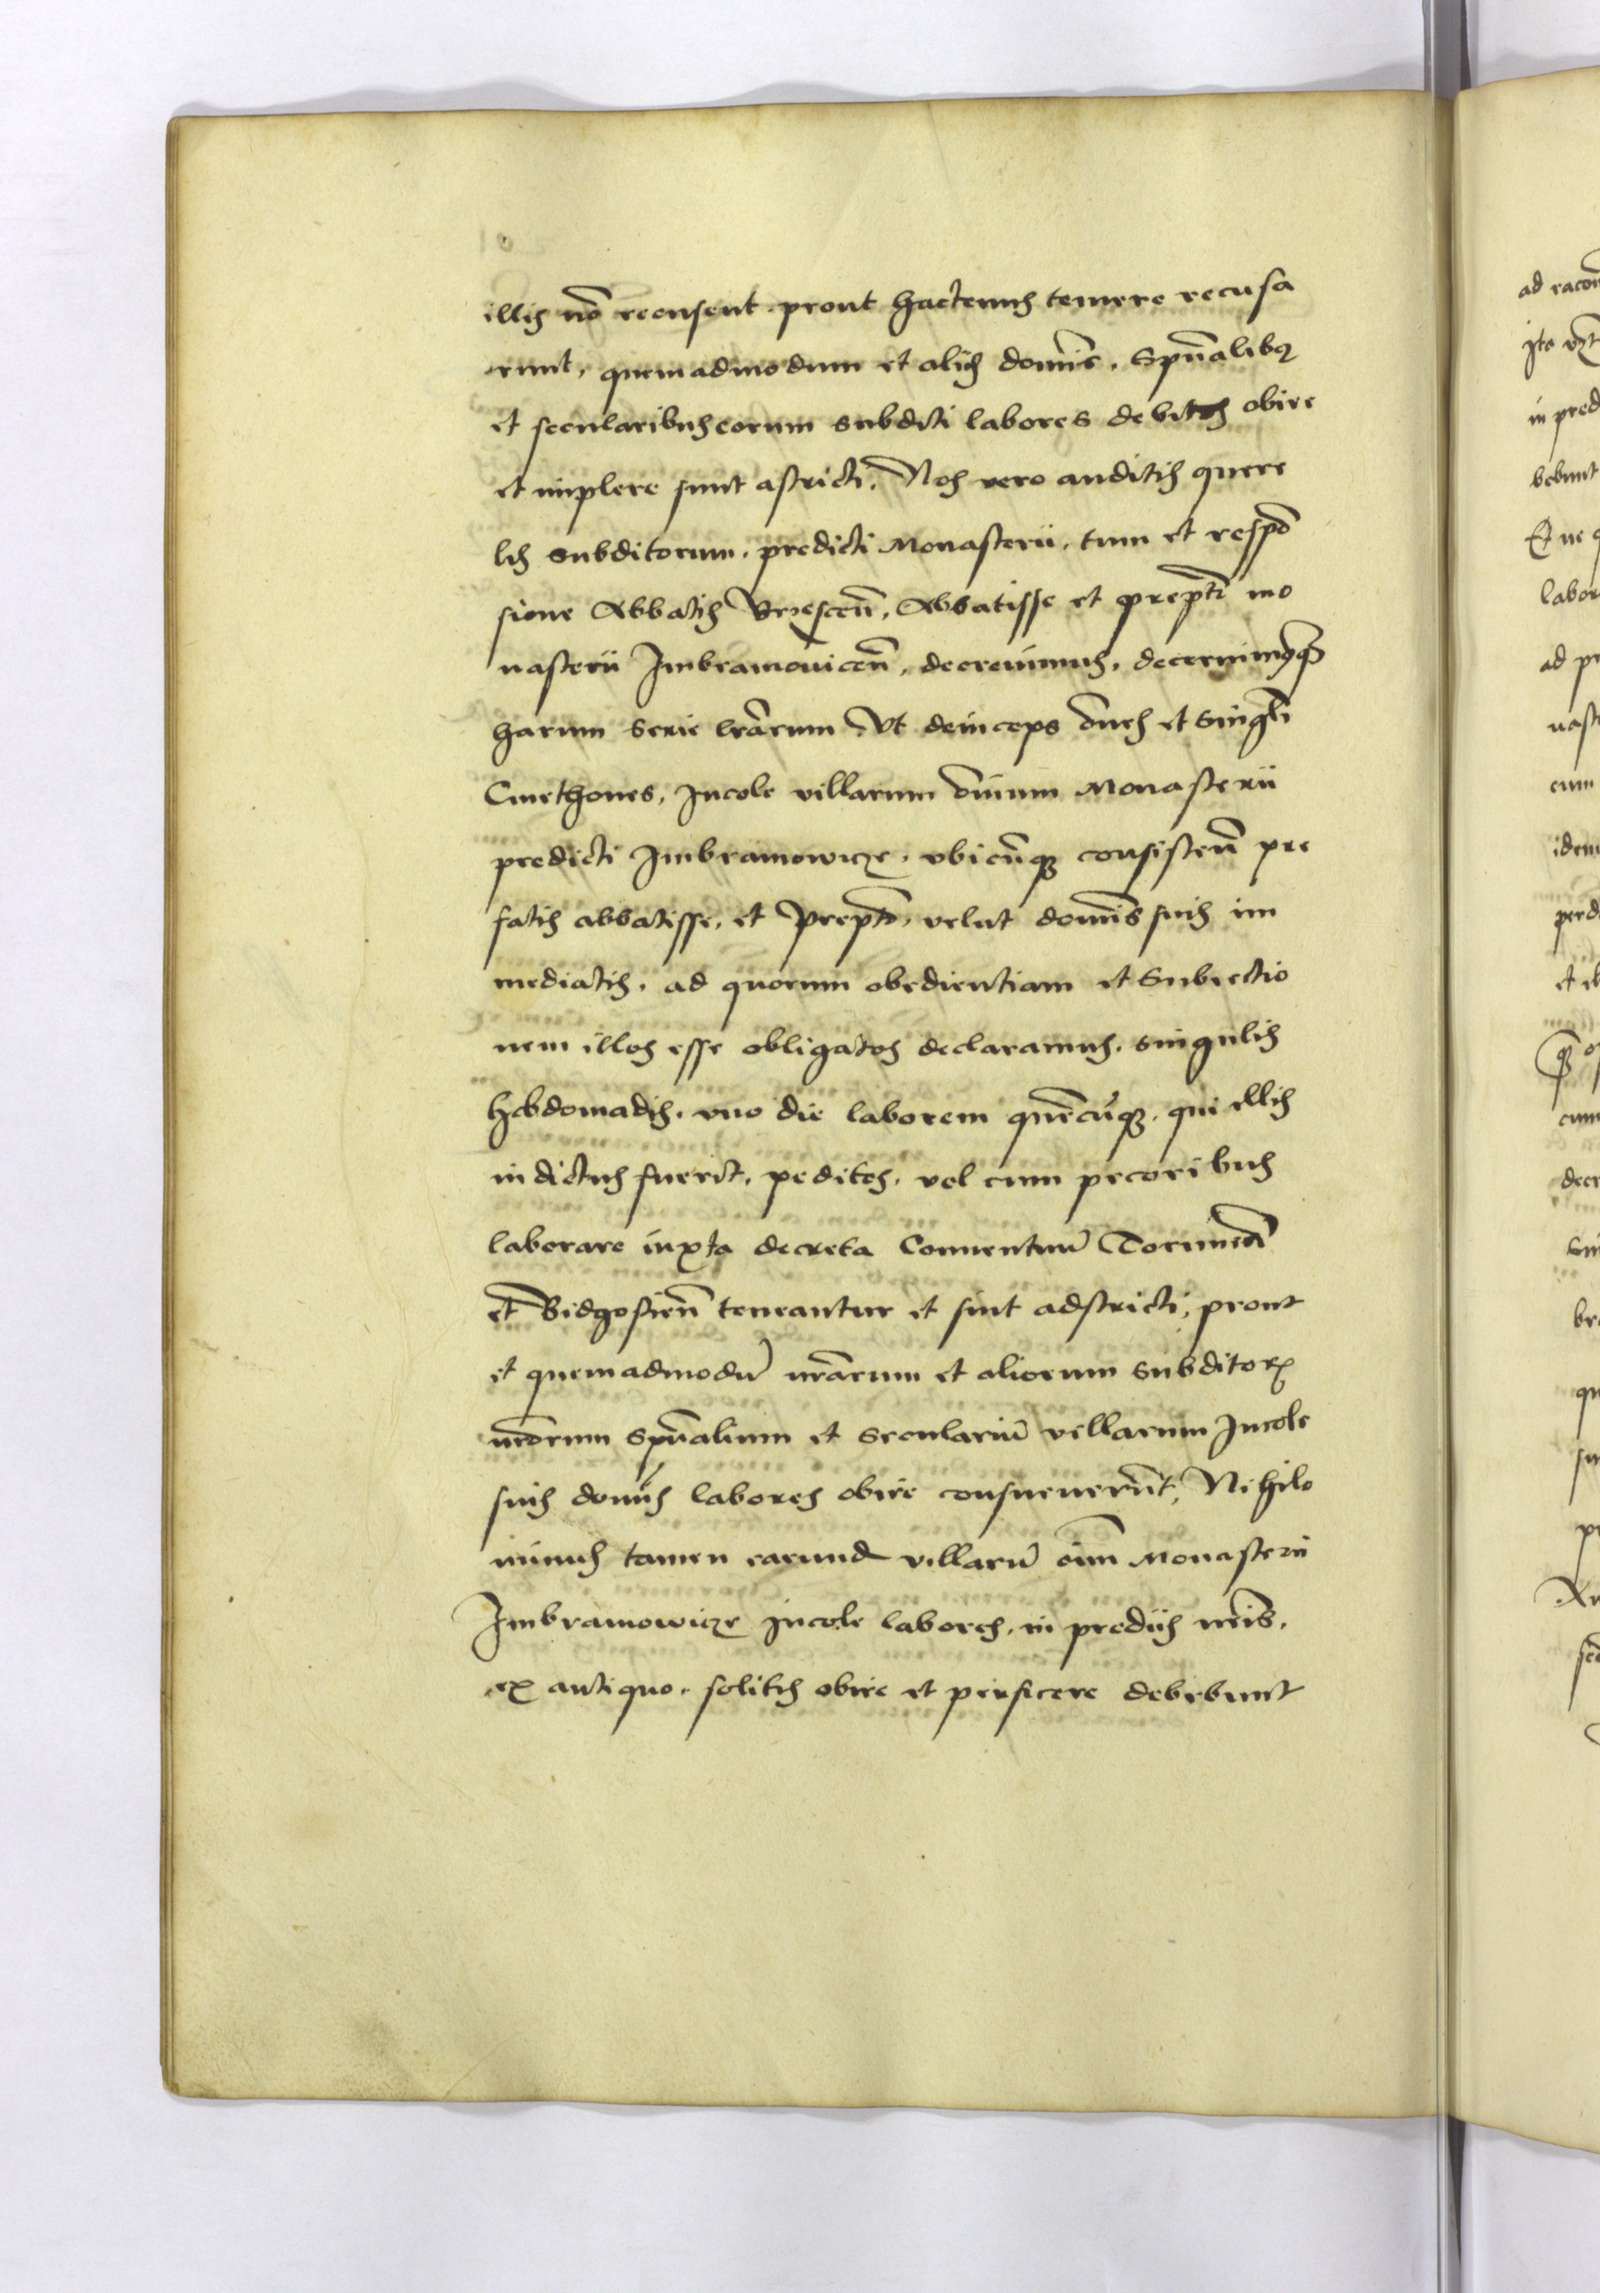 illis nō recusent prout hactenus temere recusa
runt, quemadmodum et aliis domīs, Spūalibꝫ
et secularibus eorum subditi labores debitos obire
et implere sunt astricti. Nos vero auditis quere
lis subditorum, predicti Monasterii, tum et respō
sione Abbatis Brzesceñ, Abbatisse et prepti mo
nasterii Imbramoviceñ, decrevimus, decernimusqꝫ
harum serie lrārum Vt deinceps om̄es et singli
Cmethones, Incole villarum om̄ium Monasterii
predicti Imbramowicze, vbicūqꝫ consisteñ pre
fatis abbatisse, et Prepto, velut domīs suis im
mediatis, ad quorum obedientiam et Subiectio
nem illos esse obligatos declaramus, singulis
hebdomadis, vno die laborem quēcūqꝫ, qui illis
indictus fuerit, pedites, vel cum pecoribus
laborare iuxta decreta Conuentuū Toruneñ
et Bidgostieñ teneantur et sint adstricti, prout
et quemadmodū nrārum et aliorum subditorꝝ
nrōrum Spūalium et Seculariū villarum Incole
suis domīs labores obire consueuerūt, Nihilo
minus tamen earund villarū oīm Monasterii
Imbramowicze Incole labores, in prediis nrīs,
ex antiquo, solitos obire et perficere debebunt
ad racon
Ita vꝫt
in pred
bebunt
Que q
labor
ad pr
nast
cum
idem
perd
et il
cum
decr
sin
br
qu
su
pr